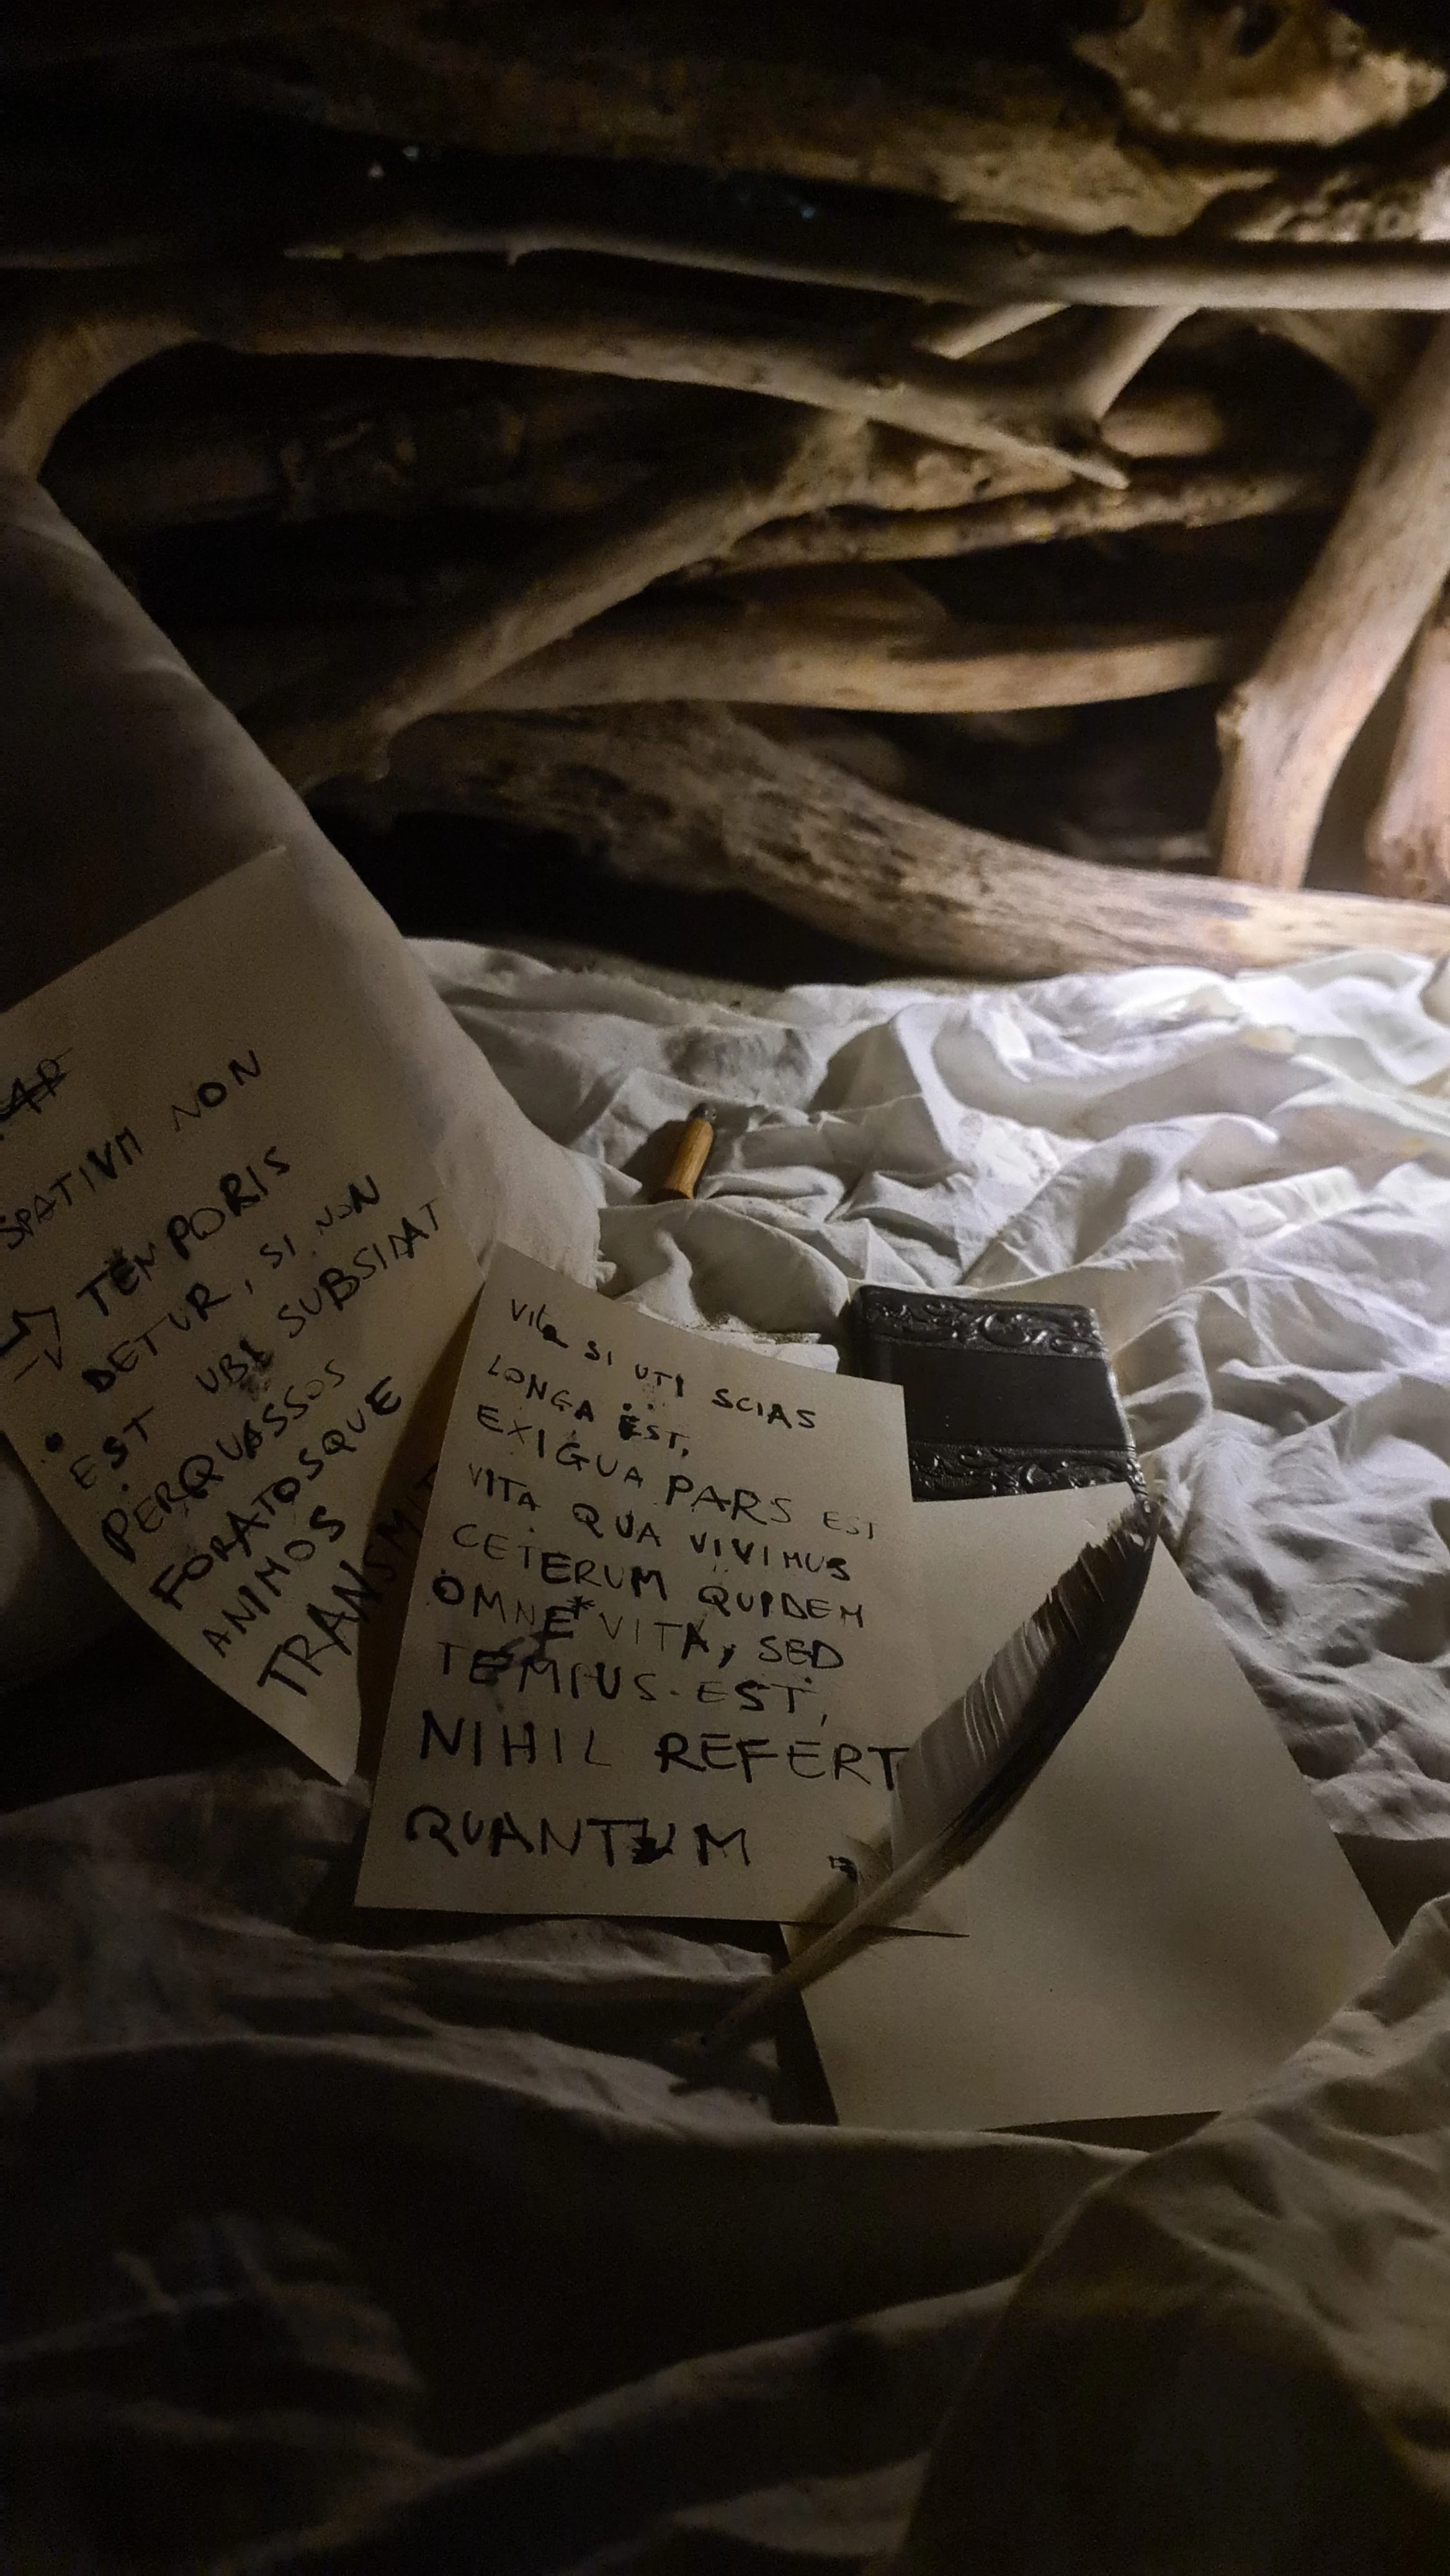 SPATIUM NON
TEMPORIS
DETUR, SI NON
EST UBI SUBSIDAT
PERQUASSOS
FORATOSQUE
ANIMOS
TRANSMIT
Vita SI UTI SCIAS
LONGA EST,
EXIGUA PARS EST
VITA QUA VIVIMUS
CETERUM QUIDEM
OMNE* VITA, SED
TEMIUS EST,
NIHIL REFERT
QUANTUM